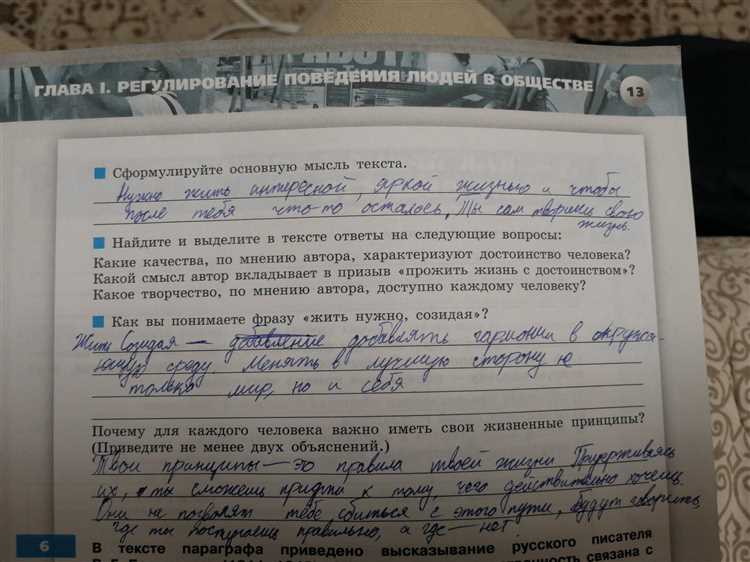 ГЛАВА I. РЕГУЛИРОВАНИЕ ПОВЕДЕНИЯ ЛЮДЕЙ В ОБЩЕСТВЕ
13
Сформулируйте основную мысль текста.
Нужно жить интересной, яркой жизнью и чтобы
после тебя что-то осталось, Ты сам творишь свою
жизнь.
Найдите и выделите в тексте ответы на следующие вопросы:
Какие качества, по мнению автора, характеризуют достоинство человека?
Какой смысл автор вкладывает в призыв «прожить жизнь с достоинством»?
Какое творчество, по мнению автора, доступно каждому человеку?
Как вы понимаете фразу «жить нужно, созидая»?
Жить Созидая — добавление добавлять гармонии в окружа-
ющую среду. Менять в лучшую сторону
только мир, но и себя
Почему для каждого человека важно иметь свои жизненные принципы?
(Приведите не менее двух объяснений.)
Твои принципы — это правила твоей жизни Придерживаясь
их, ты сможешь придти к тому, чего действительно хочешь.
Они не позволят тебе сбиться с этого пути, будут говорить,
где ты поступаешь правильно, а где — нет.
6
В тексте параграфа приведено высказывание русского писателя
связана с